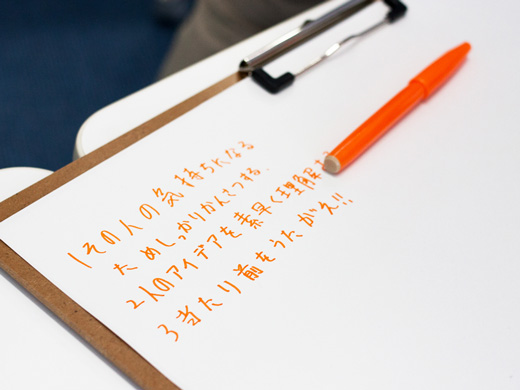 1その人の気持ちになる
ためしっかりかんさつする.
2人のアイデアを素早く理解す
3当たり前をうたがえ!!